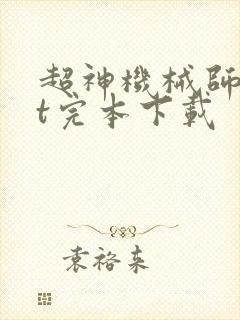 超神機械師
t完本下載
袁裕来